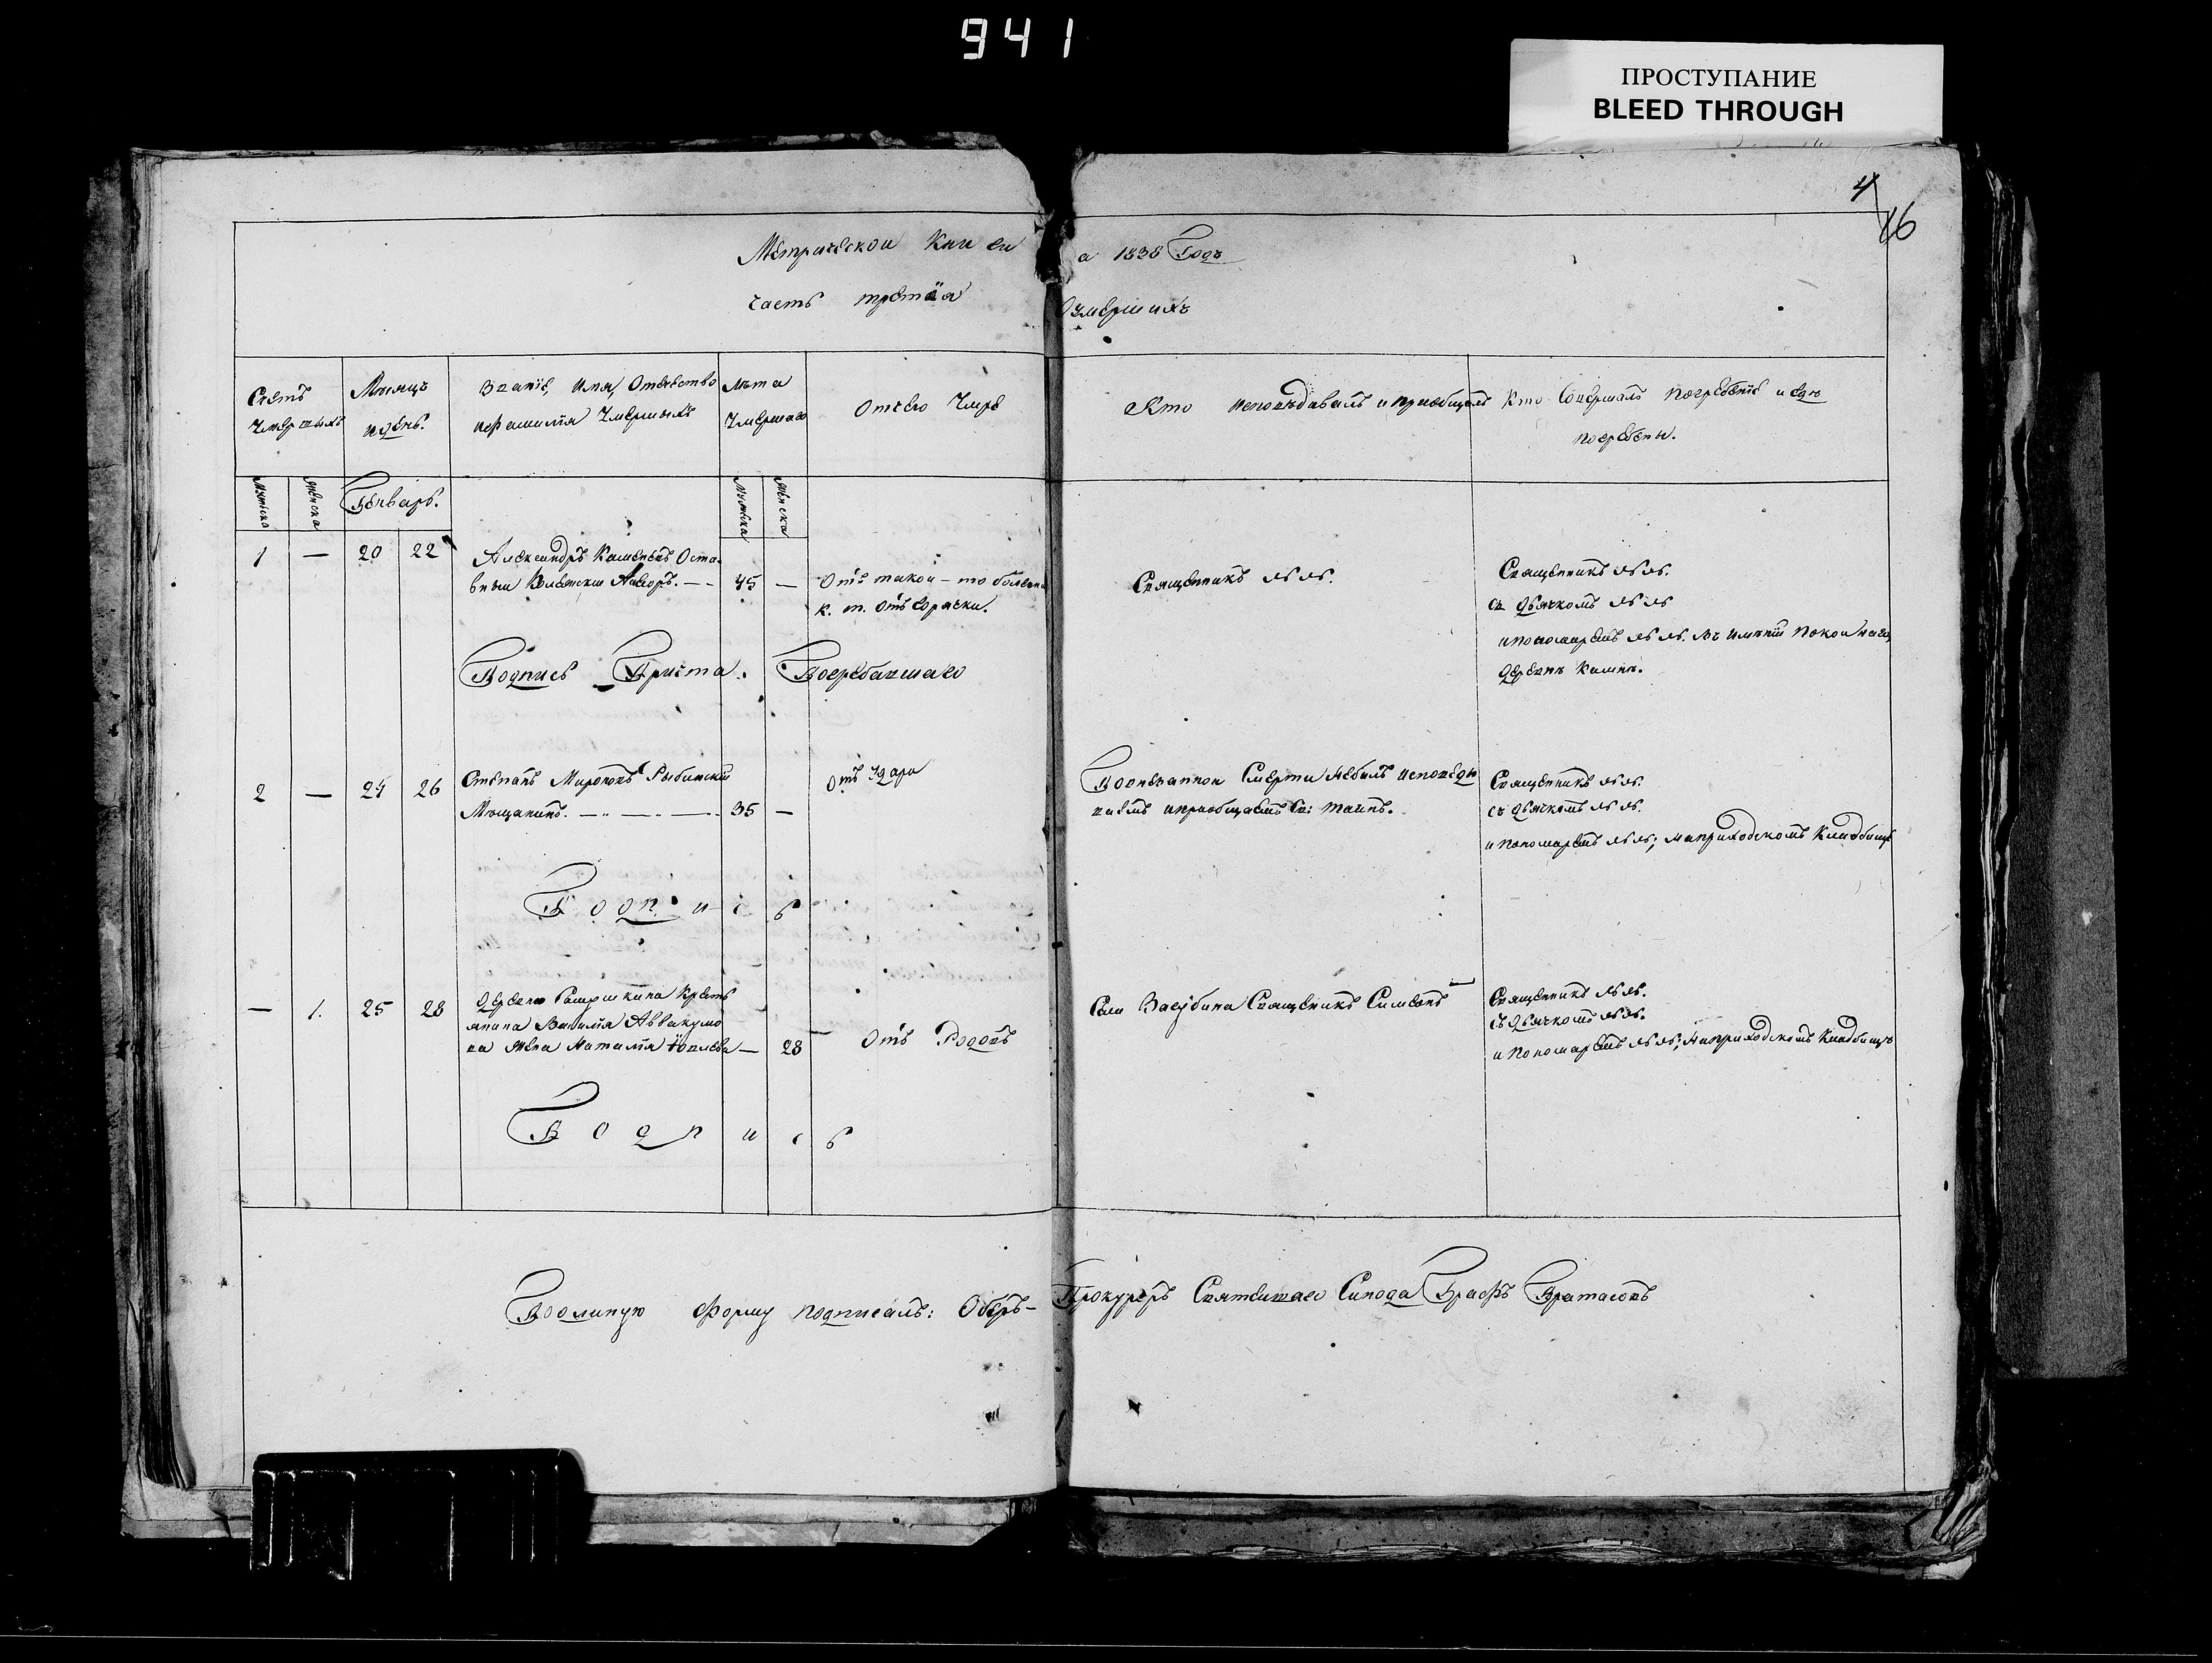 941
ПРОСТУПАНИЕ
BLEED THROUGH
4
16
Метрической Книги на 1838 Годъ
часть третїя Оумершихъ
Счетъ умершихъ
Мѣсяцъ и день.
Званїе, имя, Отечество и фамилїя умершихъ
Лѣта умершаго
Отчего умре
Кто исповѣдывалъ и приобщалъ
Кто Совершалъ погребенїе и гдѣ погребены.
Мужеска
Женска
Генварь.
Мужеска
Женска
1 — 20 22
Александръ Каменевъ Оста-
вный Асесоръ. — 45 —
Отъ такой-то болезни
к. т. отъ горячки.
Священникъ NN.
Священникъ NN.
съ дьячкомъ NN
и пономаремъ NN. въ имѣнїи покойнаго,
деревнѣ
Подпись Погребавшаго
2 — 24 26
Степанъ Мироновъ Рыбинскїй
Мѣщанинъ. — 35 —
Отъ удара
По внезапной Смерти небылъ исповѣды
ваемъ и приобщаемъ Св: таинъ.
Священникъ NN.
съ дьячкомъ NN.
и пономаремъ NN; на приходскомъ Кладбищѣ
Подпись
— 1. 25 28
Деревни Кресть
янина Василїя Аввакумо
ва жена Наталїя — 28
Отъ Родовъ
Села Священикъ Симеонъ
Священникъ NN.
съ дьячкомъ NN.
и пономаремъ NN; на приходскомъ Кладбищѣ
Подпись
Подлиную форму подписалъ: Оберъ-Прокуроръ Святейшаго Синода Графъ Пратасовъ